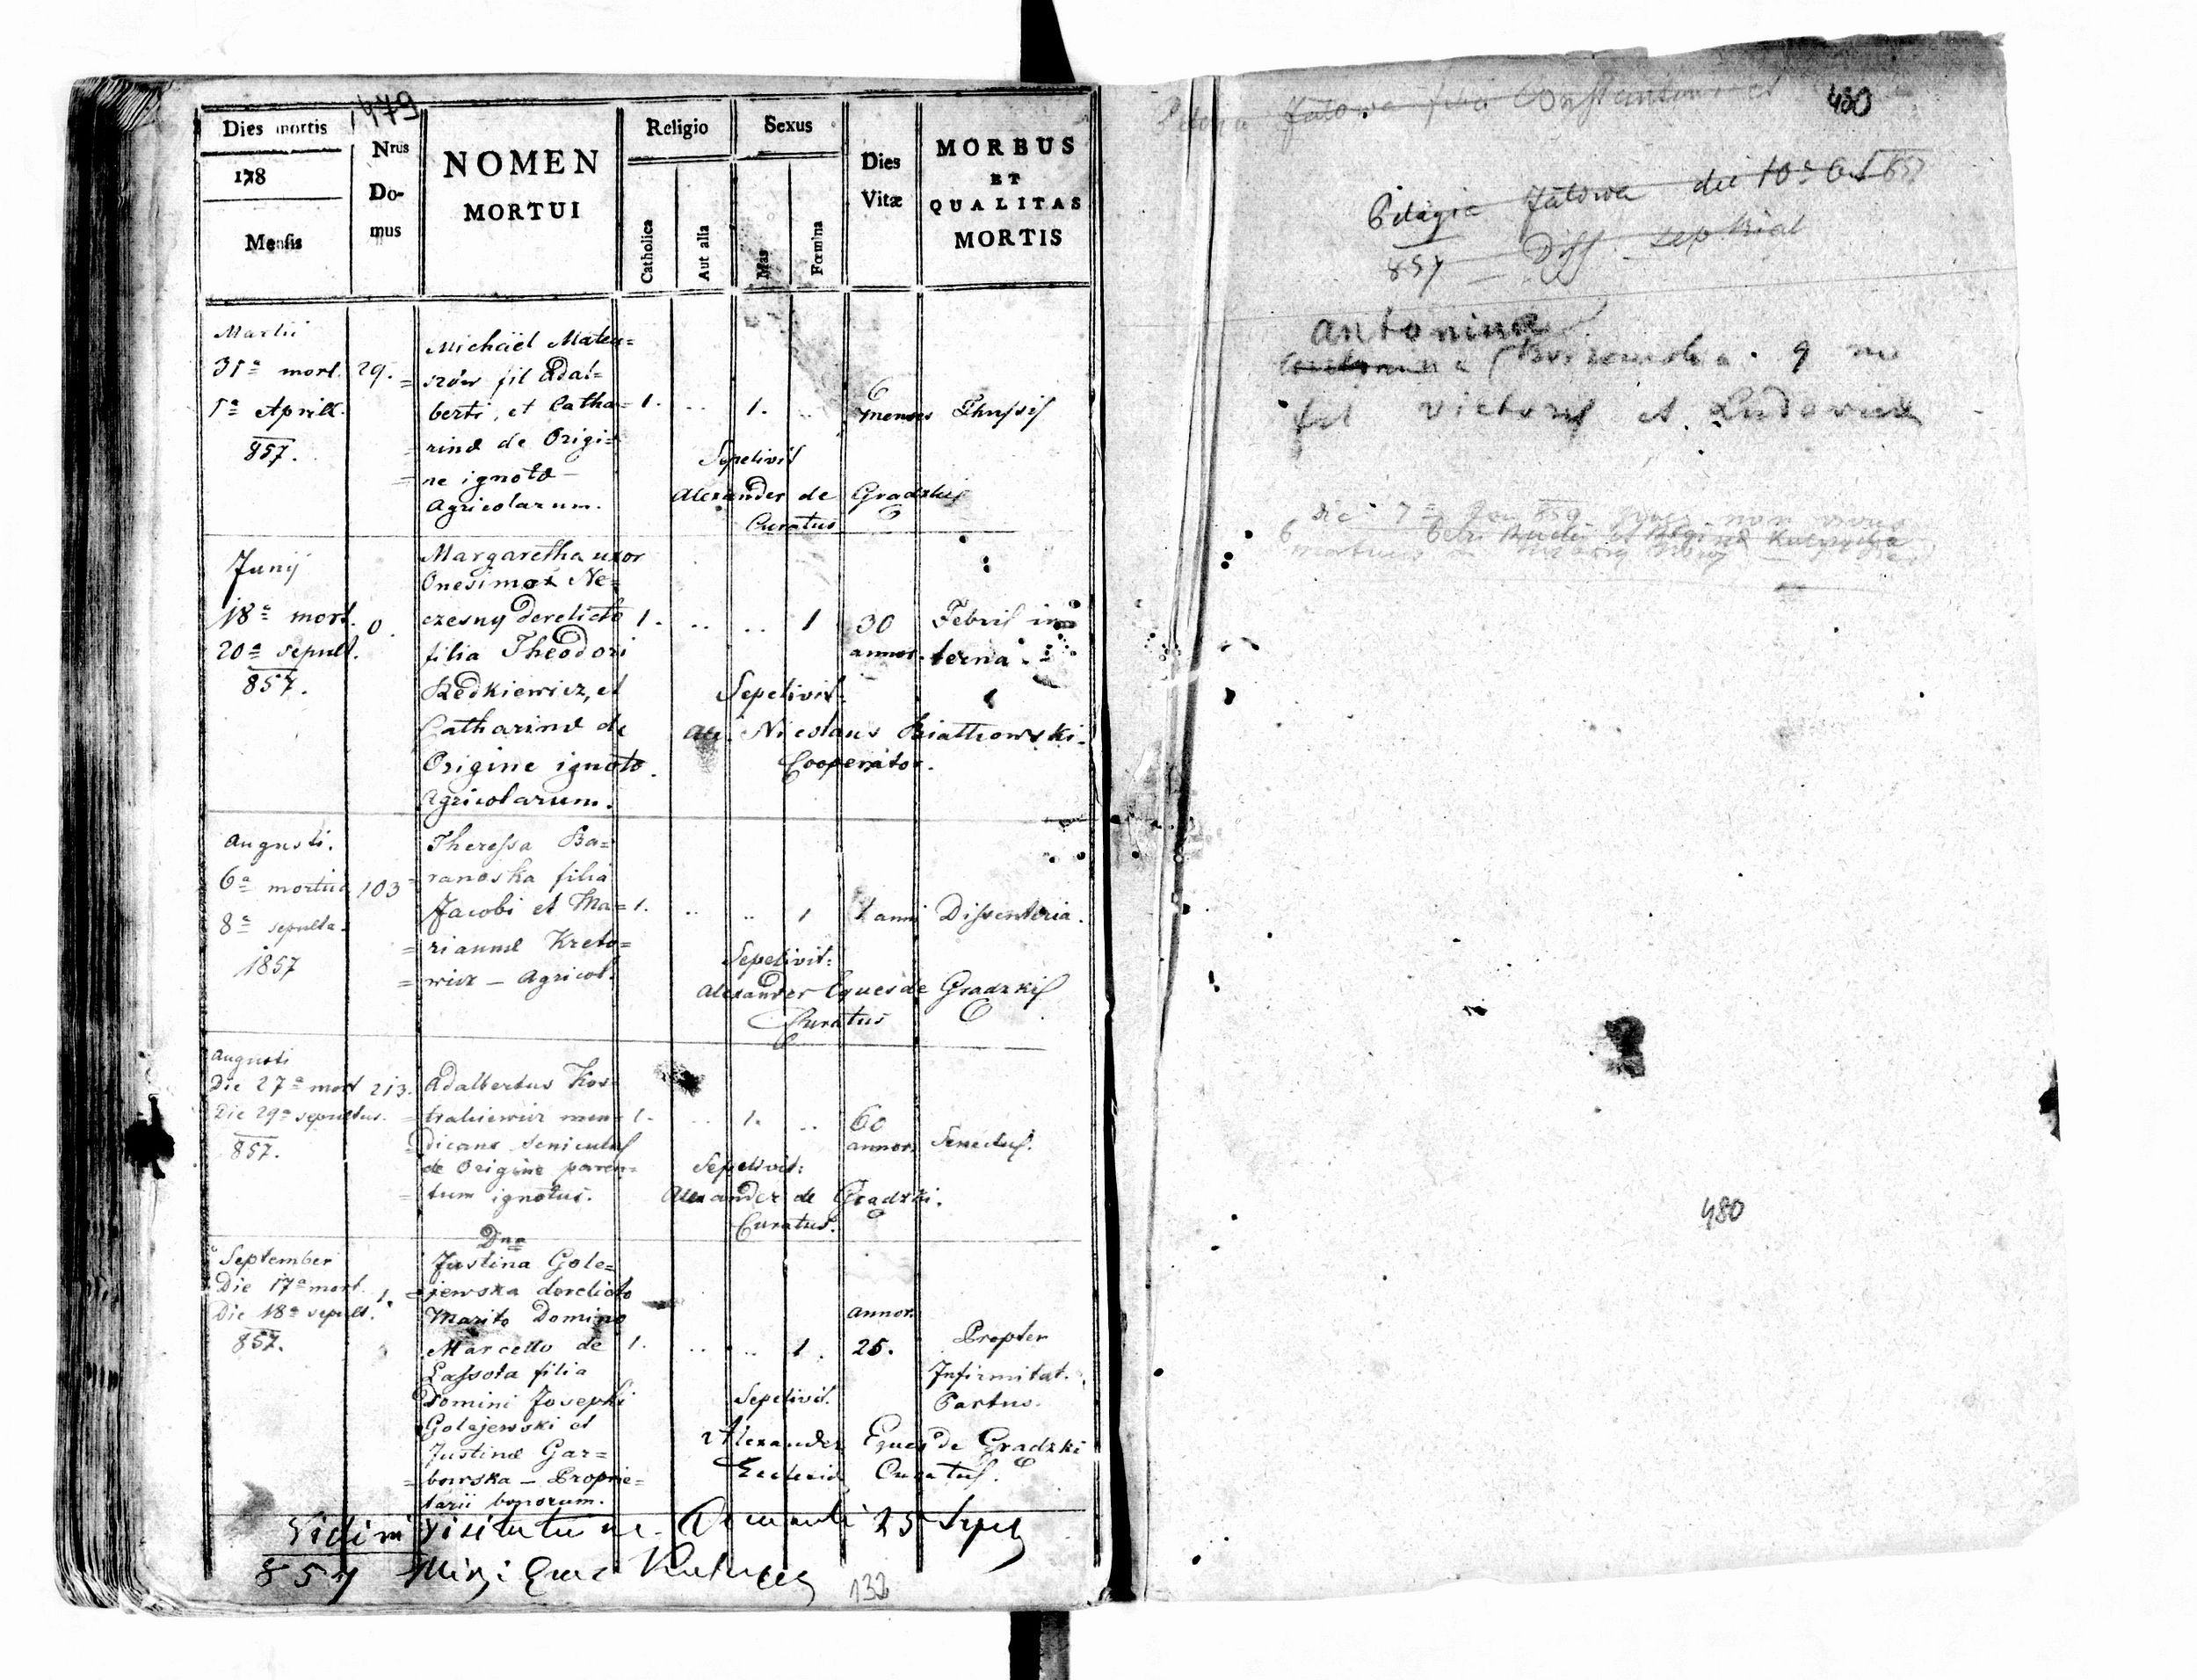 479
Dies mortis
178
Mensis
Nrus
Do-
mus
NOMEN
MORTUI
Religio
Catholica
Aut alia
Sexus
Mas
Fœmina
Dies
Vitæ
MORBUS
ET
QUALITAS
MORTIS
Martii
31a mort.
1a Aprill.
857.
29.
Michaël Mateu=
=szów fil Adal=
berti, et Catha=
=rinæ de Origi=
=ne ignotæ
Agricolarum.
1. .. 1. ..
6
menses
Thussis
Sepelivit
Alexander de Gradzkis
Curatus
Junij
18a mort.
20a sepult.
857.
0.
Margaretha uxor
Onesimi Ne=
czesny derelicto
filia Theodori
Redkiewicz, et
Catharinæ de
Origine ignoto.
Agricolarum.
1. .. .. 1
30
annor.
Febris in
terna.
Sepelivit.
Nicolaus Białkowski
Cooperator.
Augusti.
6a mortua
8a sepulta
1857
103
Theressa Ba=
=ranoska filia
Jacobi et Ma=
=riannæ Kreto=
=wicz _ Agricol.
1. .. .. 1
1 anni
Dissenteria.
Sepelivit:
Alexander Eques de Gradzkis
Curatus
Augusti
Die 27a mort
Die 29a sepultus.
857.
213.
Adalbertus Kos=
=trakiewicz men=
=dicans seniculus
de Origine paren=
=tum ignotus.
1. .. 1. ..
60
annor.
Senectus.
Sepelivit:
Alexander de Gradzki.
Curatus.
September
Die 17a mort.
Die 18a sepult.
857.
1.
Dna
Justina Gole=
=jewska derelicto
Marito Domino
Marcello de
Lassota filia
Domini Josephi
Golejewski et
Justinæ Gar=
=bowska _ Proprie=
tarii bonorum.
1. .. .. 1.
annor.
25.
Propter
Infirmitat.
Partus.
Sepelivit.
Alexander Eques de Gradzki
Ecclesiæ Curatus.
Vidi in visitatione 25 Sept
857
132
480
filia Constantini et
Pelagia Jałowa die 10a Oct 857
857
Antonina
9 m
fil Victoris et Ludovica
die 7a 859 non vivus
Petri et Reginæ
480